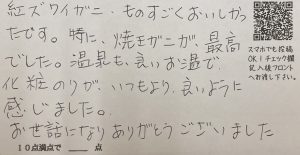 紅ズワイガニ、ものすごくおいしかっ
たです。特に、焼ガニが、最高
でした。温泉も、良いお湯で、
化粧のりが、いつもより、良いように
感じました。
お世話になりありがとうございました
10点満点で　　点
スマホでも投稿
OK！チェック欄
記入後フロント
へお渡し下さい。